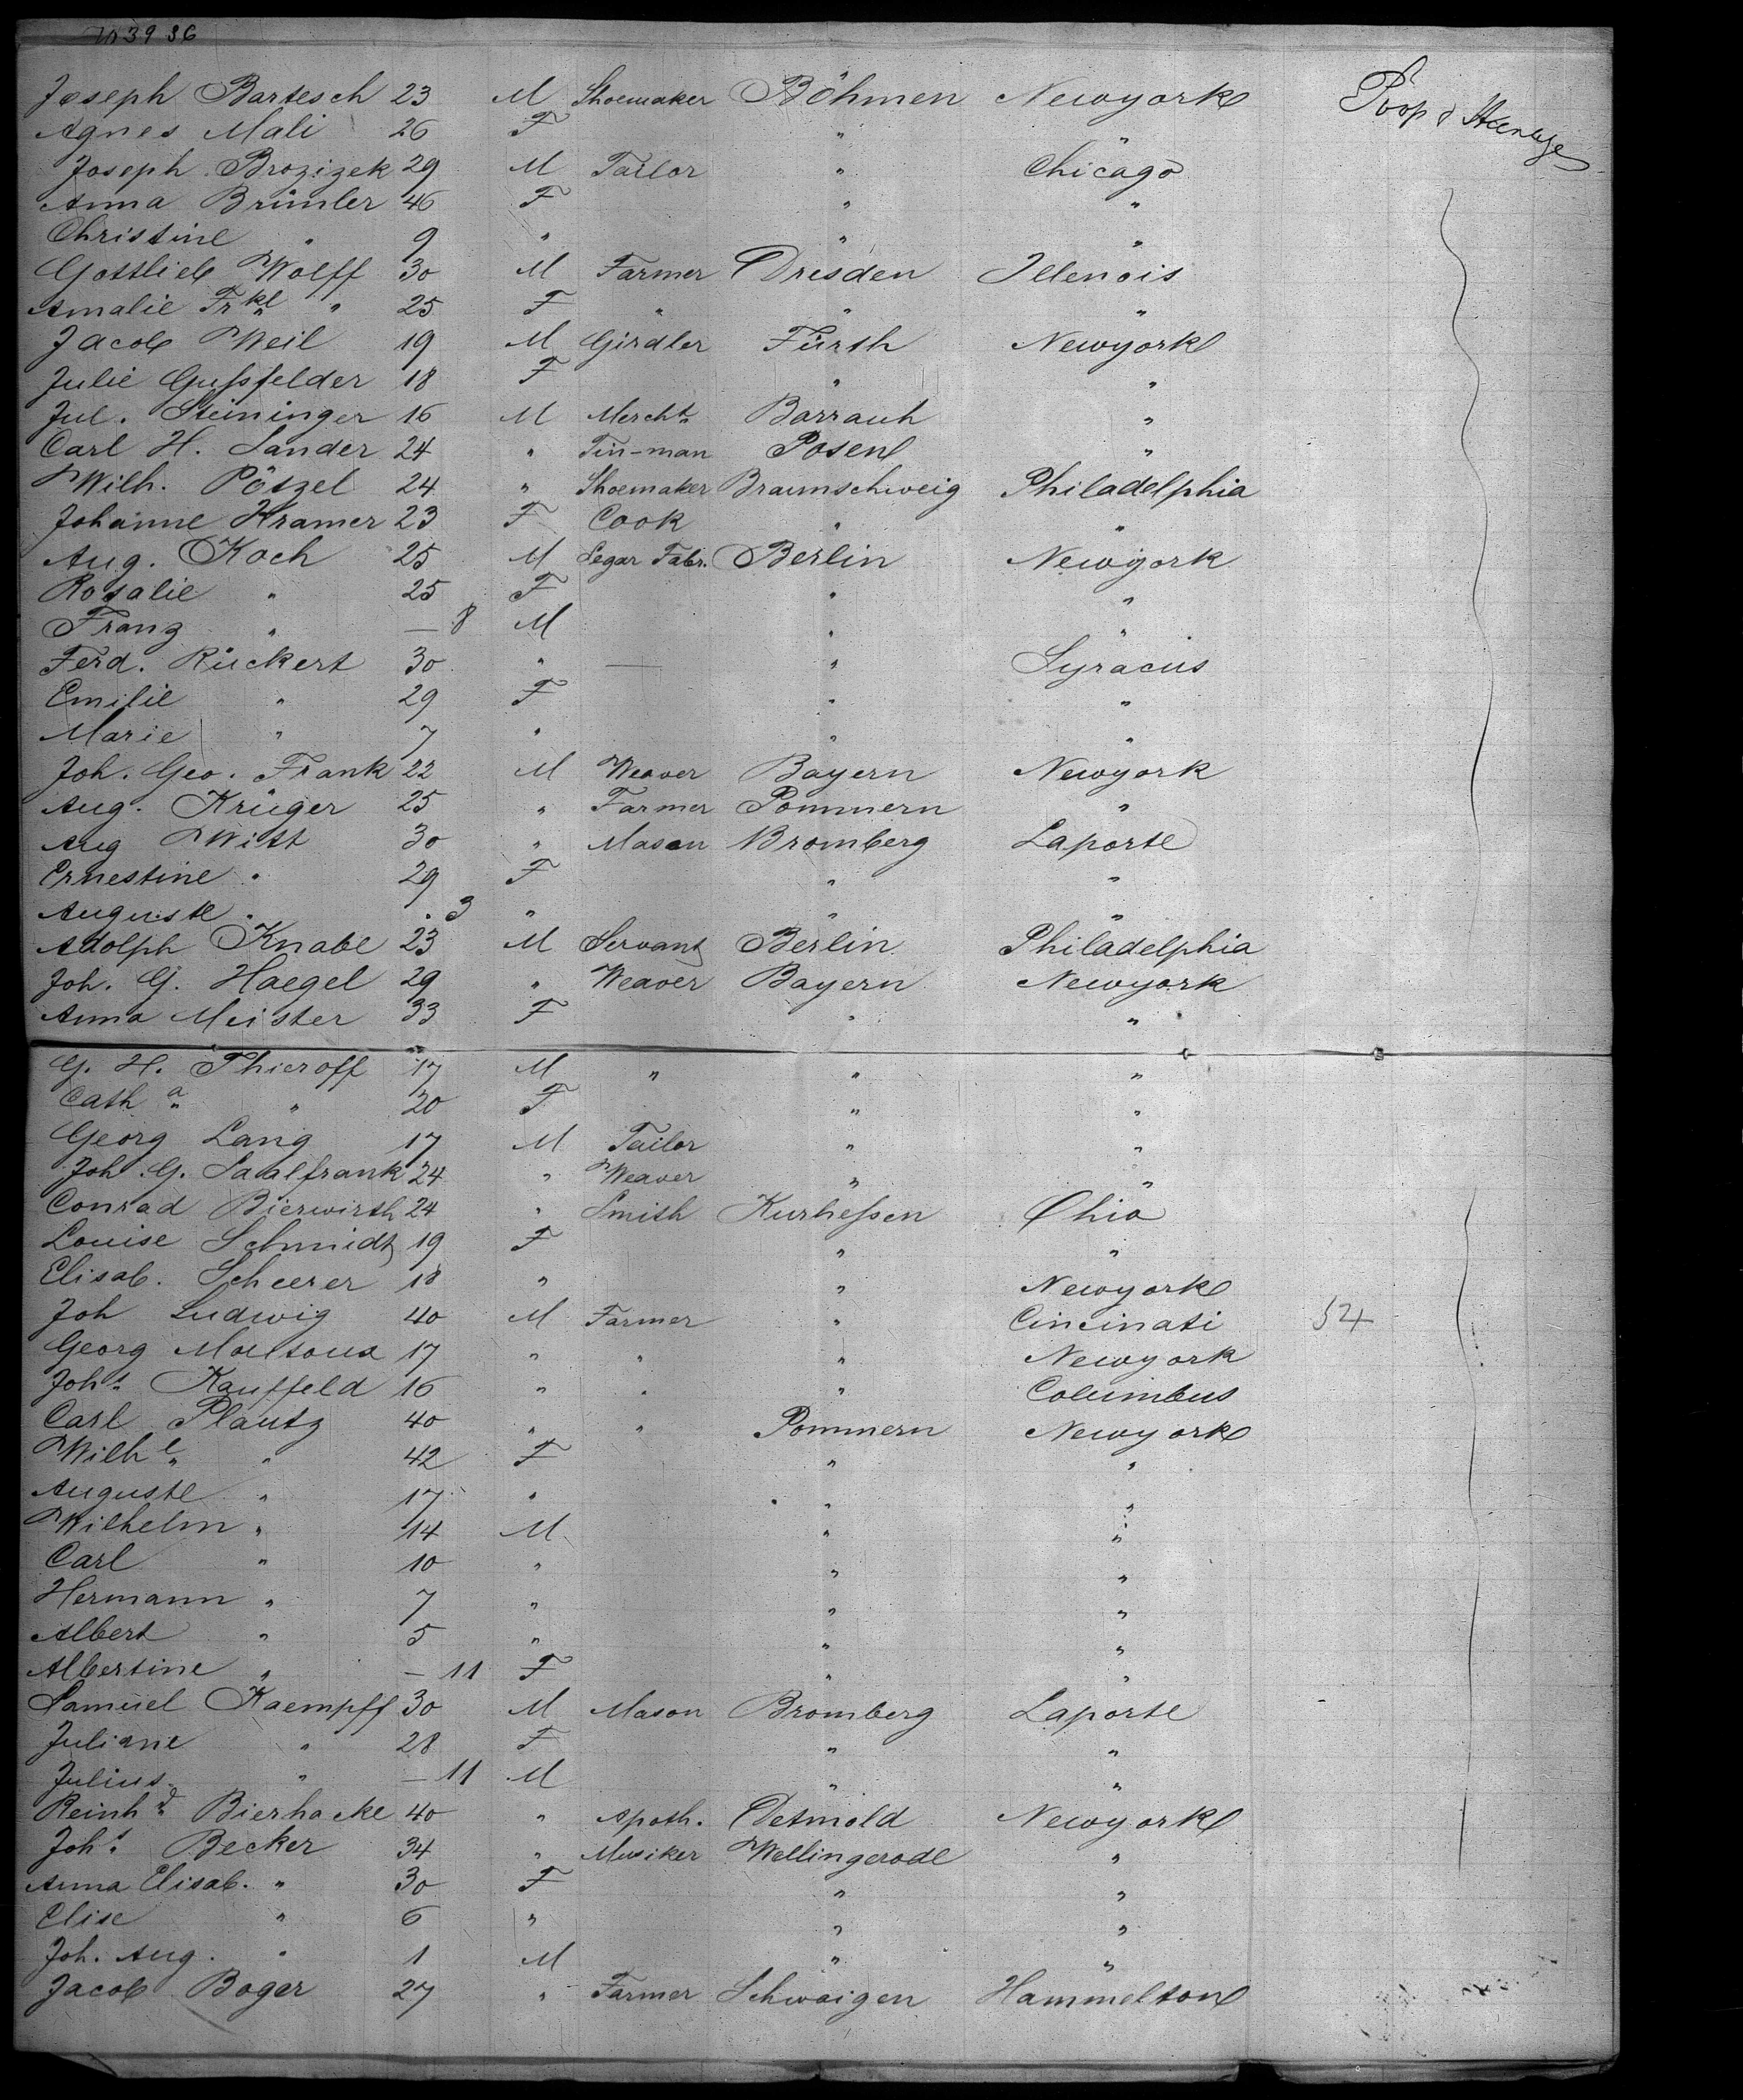 39 36
Joseph Bartesch 23 M Shoemaker Böhmen Newyork Poop & Steerage
Agnes Mali 26 F " "
Joseph Brozizek 29 M Tailor " Chicago
Anna Brümler 46 F " "
Christine " 9 " " "
Gottlieb Wolff 30 M Farmer Dresden Illenois
Amalie " 25 F " " "
Jacob Weil 19 M Girdler Fürth Newyork
Julie Gußfelder 18 F " "
Jul. Steininger 16 M Mercht. Barrauh "
Carl H. Sander 24 " Tin-man Posen "
Wilh. Pötzel 24 " Shoemaker Braunschweig Philadelphia
Johanne Kramer 23 F Cook " "
Aug. Koch 25 M Segar Fabr. Berlin Newyork
Rosalie " 25 F " "
Franz " — 8 M " "
Ferd. Rückert 30 " — " Syracus
Emilie " 29 F " "
Marie " 7 " " "
Joh. Geo. Frank 22 M Weaver Bayern Newyork
Aug. Krüger 25 " Farmer Pommern "
Aug Witt 30 " Mason Bromberg Laporte
Ernestine " 29 F " "
Auguste " " 3 " " "
Adolph Knabe 23 M Servant Berlin Philadelphia
Joh. G. Haegel 29 " Weaver Bayern Newyork
Anna Meister 33 F " "
G. H. Thieroff 17 M " " "
Catha " 20 F " "
Georg Lang 17 M Tailor " "
Joh. G. Saalfrank 24 " Weaver " "
Conrad Bierwirth 24 " Smith Kurheßen Ohio
Louise Schmidt 19 F " "
Elisab. Scheerer 18 " " Newyork
Joh Ludwig 40 M Farmer " Cincinati 54
Georg 17 " " " Newyork
Johs. Kauffeld 16 " " " Columbus
Carl Plautz 40 " " Pommern Newyork
Wilhe " 42 F " "
Auguste " 17 " " "
Wilhelm " 14 M " "
Carl " 10 " " "
Hermann " 7 " " "
Albert " 5 " " "
Albertine " — 11 F " "
Samuel Kaempff 30 M Mason Bromberg Laporte
Juliane " 28 F " "
Julius " — 11 M " "
Reinhd. Bierhacke 40 " Apoth. Detmold Newyork
Johs. Becker 34 " Musiker Wellingerode "
Anna Elisab. " 30 F " "
Elise " 6 " " "
Joh. Aug. " 1 M " "
Jacob Boger 27 " Farmer Schwaigen Hammelton